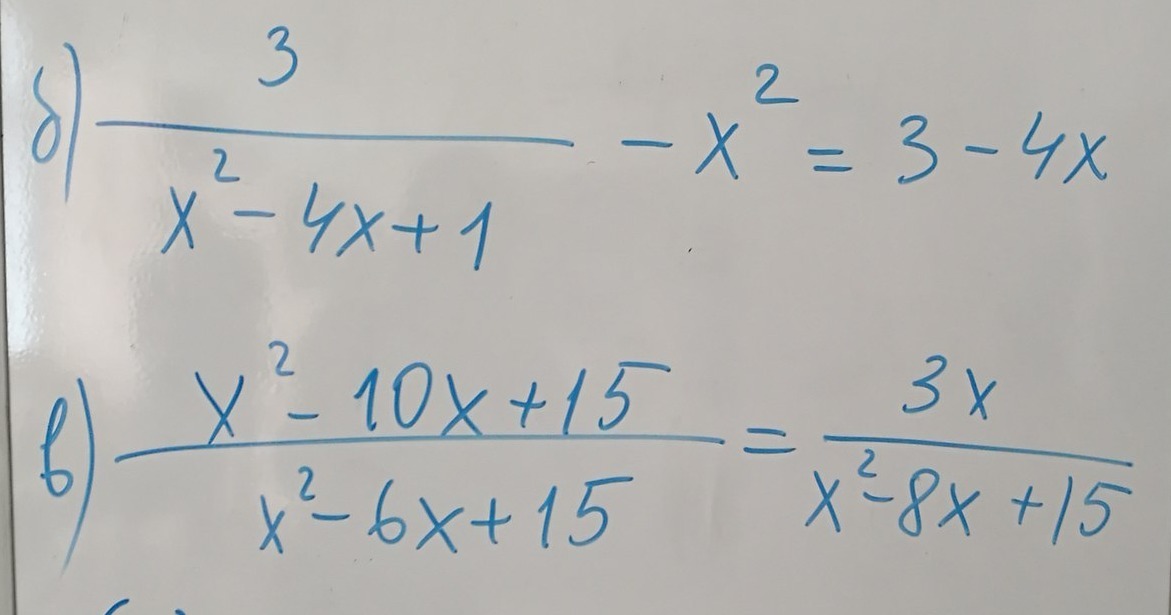 б) 3 / (x² - 4x + 1) - x² = 3 - 4x
в) (x² - 10x + 15) / (x² - 6x + 15) = 3x / (x² - 8x + 15)